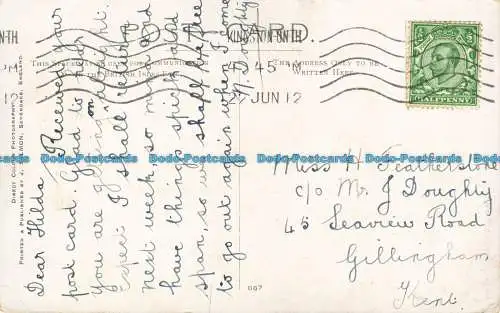 POST CARD.
THIS SPACE MAY BE USED FOR COMMUNICATION
THE BRITISH ISLES
THE ADDRESS ONLY TO BE
WRITTEN HERE.
KINGSTON
5 45 PM
27 JUN 12
HALFPENNY
Dear Hilda
Received your
post card. Glad to hear
you are going on alright.
Expect I shall return
next week, so mind and
have things spick and
span, so we shall be free
to go out again when I come
Y. Doughty
Miss H Featherstone
c/o Mr J Doughty
45 Seaview Road
Gillingham
Kent.
DIRECT COLOR PHOTOGRAPHY.
PRINTED & PUBLISHED BY J. SALMON, SEVENOAKS, ENGLAND.
Postcards-Online
Postcards-Online
Postcards-Online
Postcards-Online
Postcards-Online
Postcards-Online